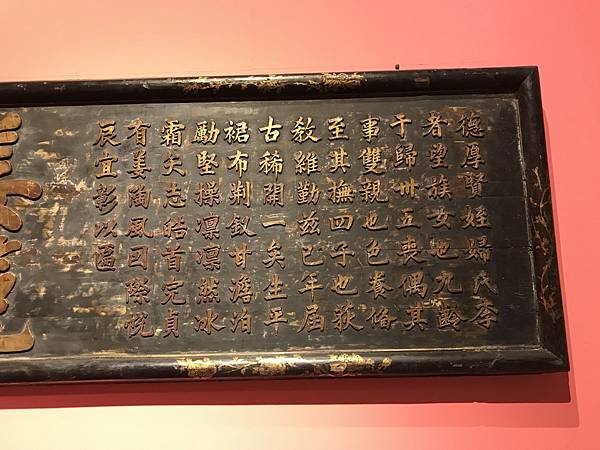 德厚賢姪婦氏李
者望族女也九齡
于歸卅五喪偶其
事雙親也色養俻
至其撫四子也荻
教維勤茲已年屆
古稀開一矣生平
裙布荆釵甘澹泊
勵堅操凜凜然冰
霜矢志皓首完貞
有姜陶風因際悅
辰宜彰以匾